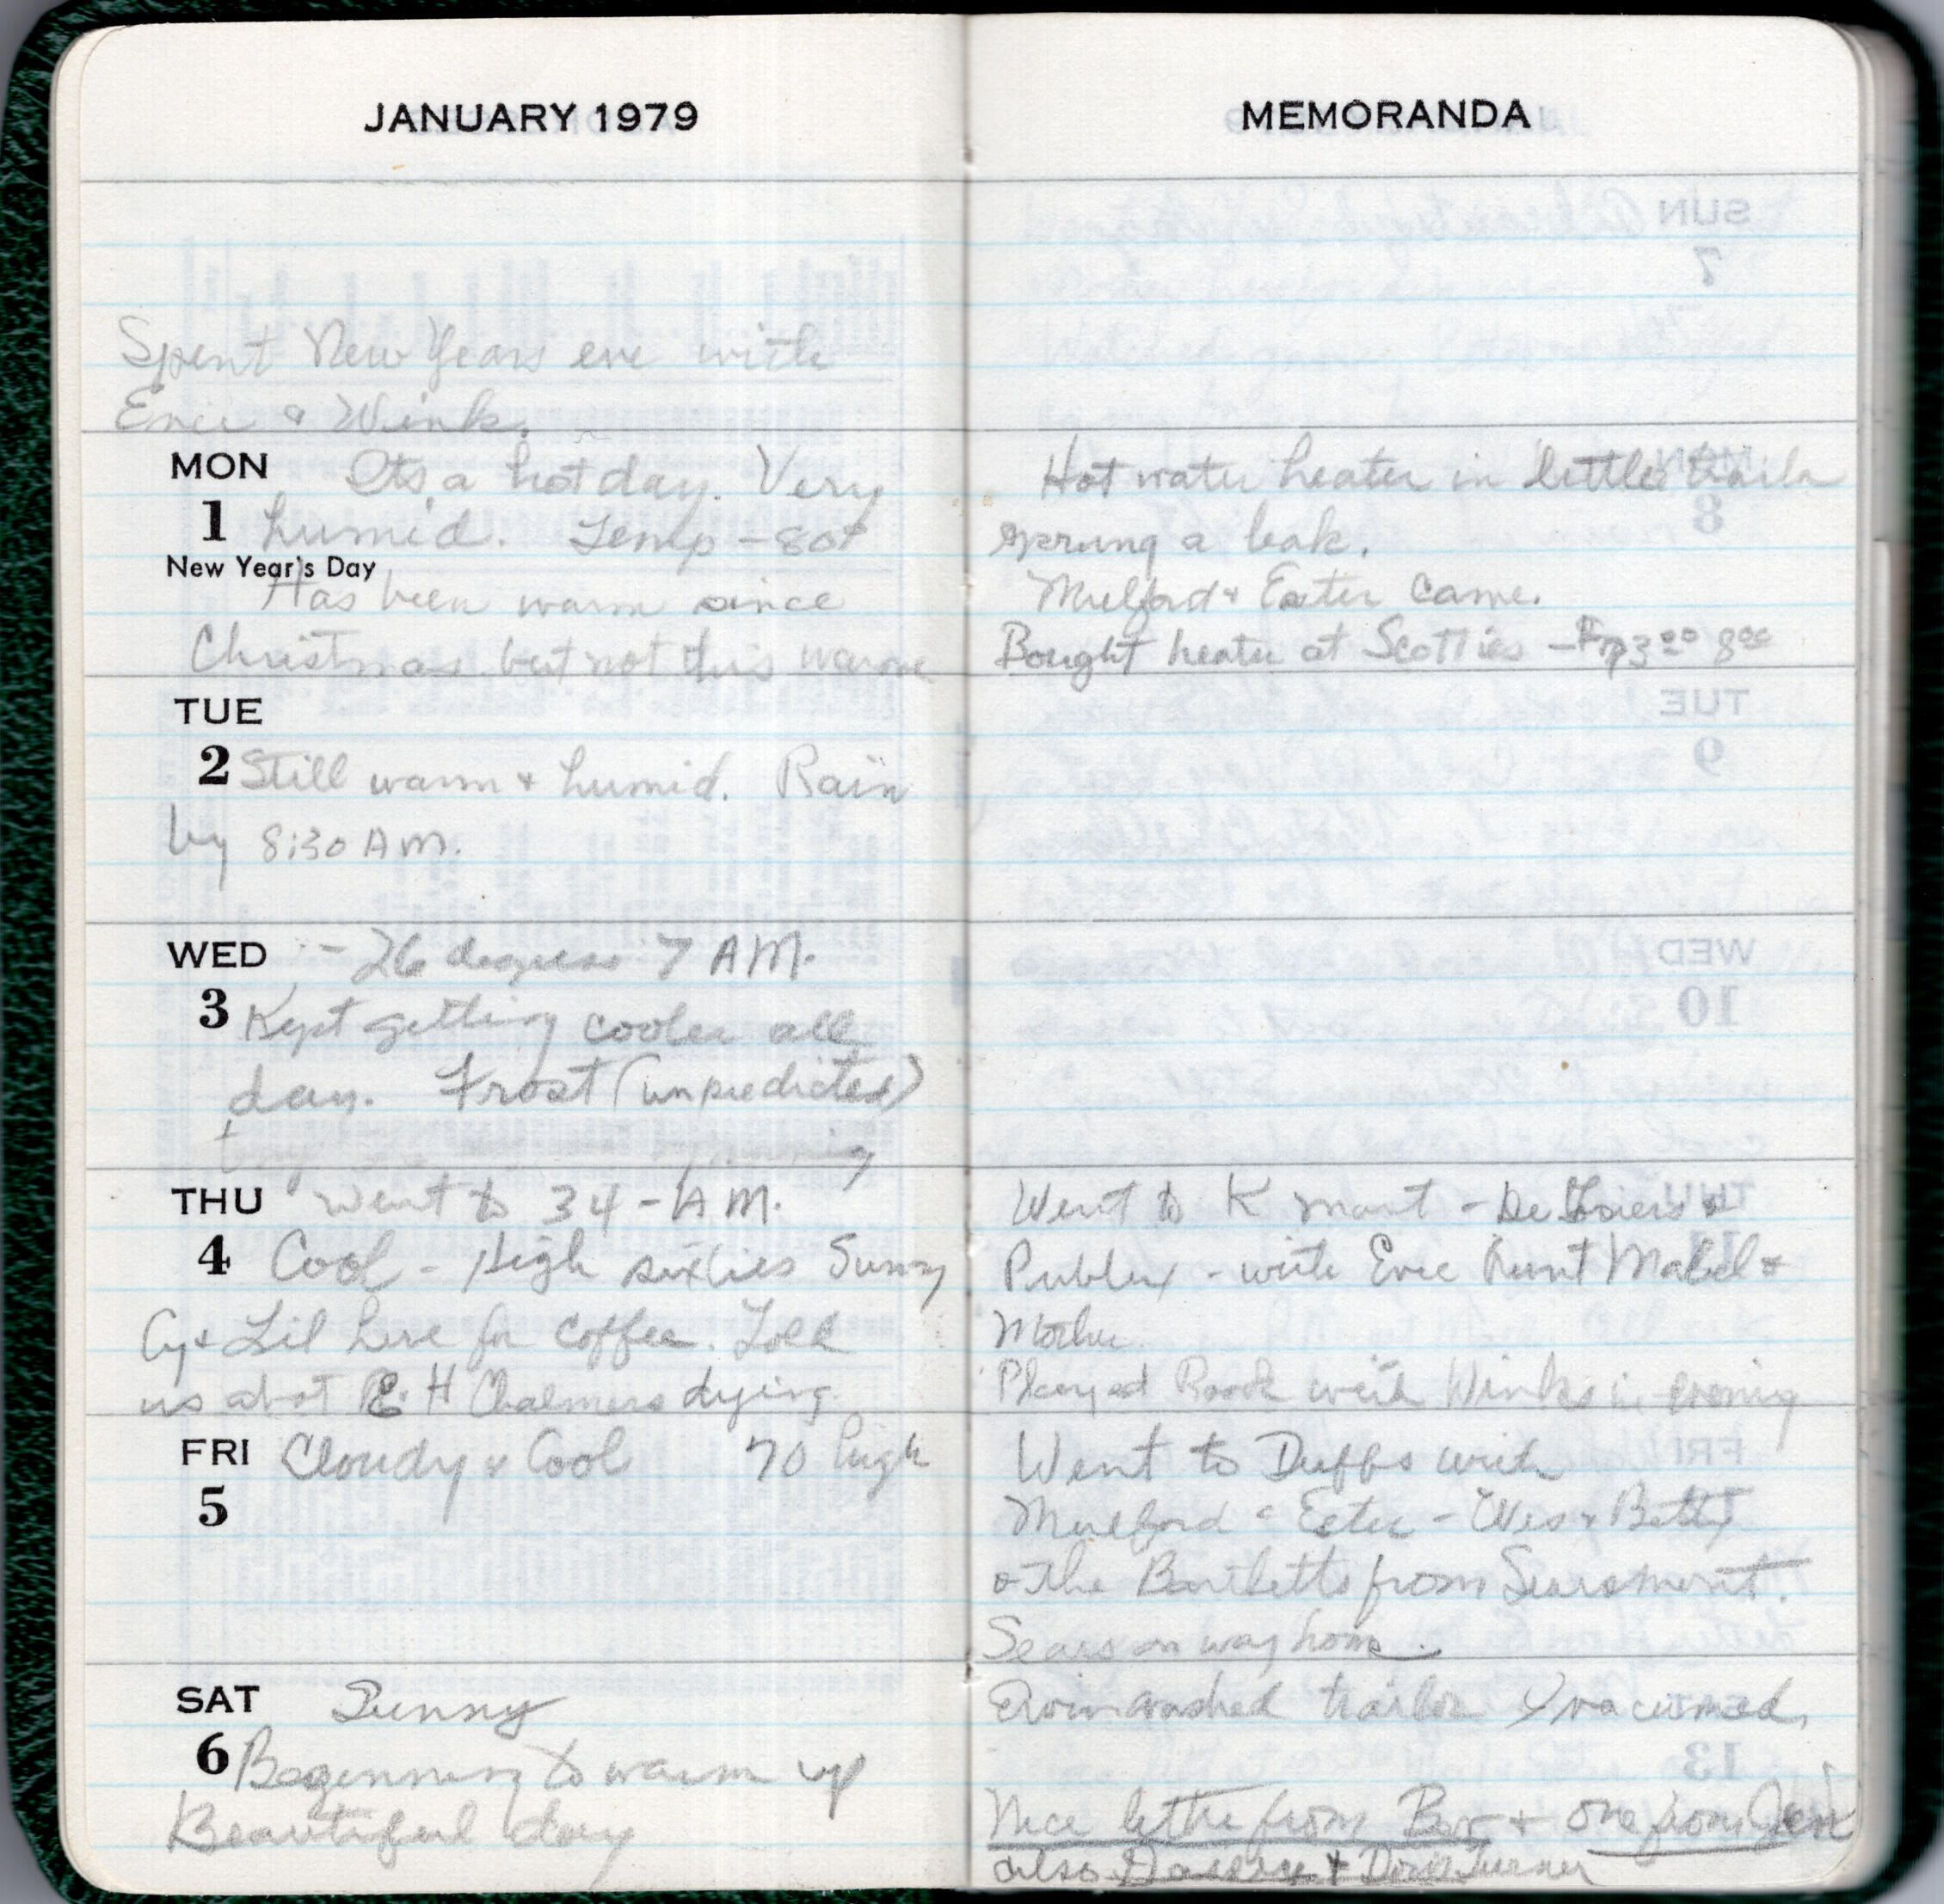 JANUARY 1979
Spent New Years eve with
Evie & Wink.
MON Its a hot day. Very
1 humid. Temp - 80+
New Year's Day
Has been warm since
Christmas but not this warm
TUE
2 Still warm & humid. Rain
by 8:30 AM.
WED - 26 degrees 7 AM.
3 Kept getting cooler all
day. Frost (unpredicted)
morning
THU Went to 34 - AM.
4 Cool - High sixties Sunny
Cy & Lil here for coffee. Told
us about E. H Chalmers dying.
FRI Cloudy & Cool 70 high
5
SAT Sunny
6 Beginning to warm up
Beautiful day
MEMORANDA
Hot water heater in little trailer
sprung a leak.
Mulford & Ester came.
Bought heater at Scotties -
Went to K mart - &
Publix - with Evie Aunt Mabel &
Mother
Played Rook with Winks in evening
Went to Duffs with
Mulford & Ester - Wes & Betty
& the Bartletts from Searsmont.
Sears on way home.
washed trailer & vacumed.
Nice letter from Bar & one from Jean
also & Doris Turner